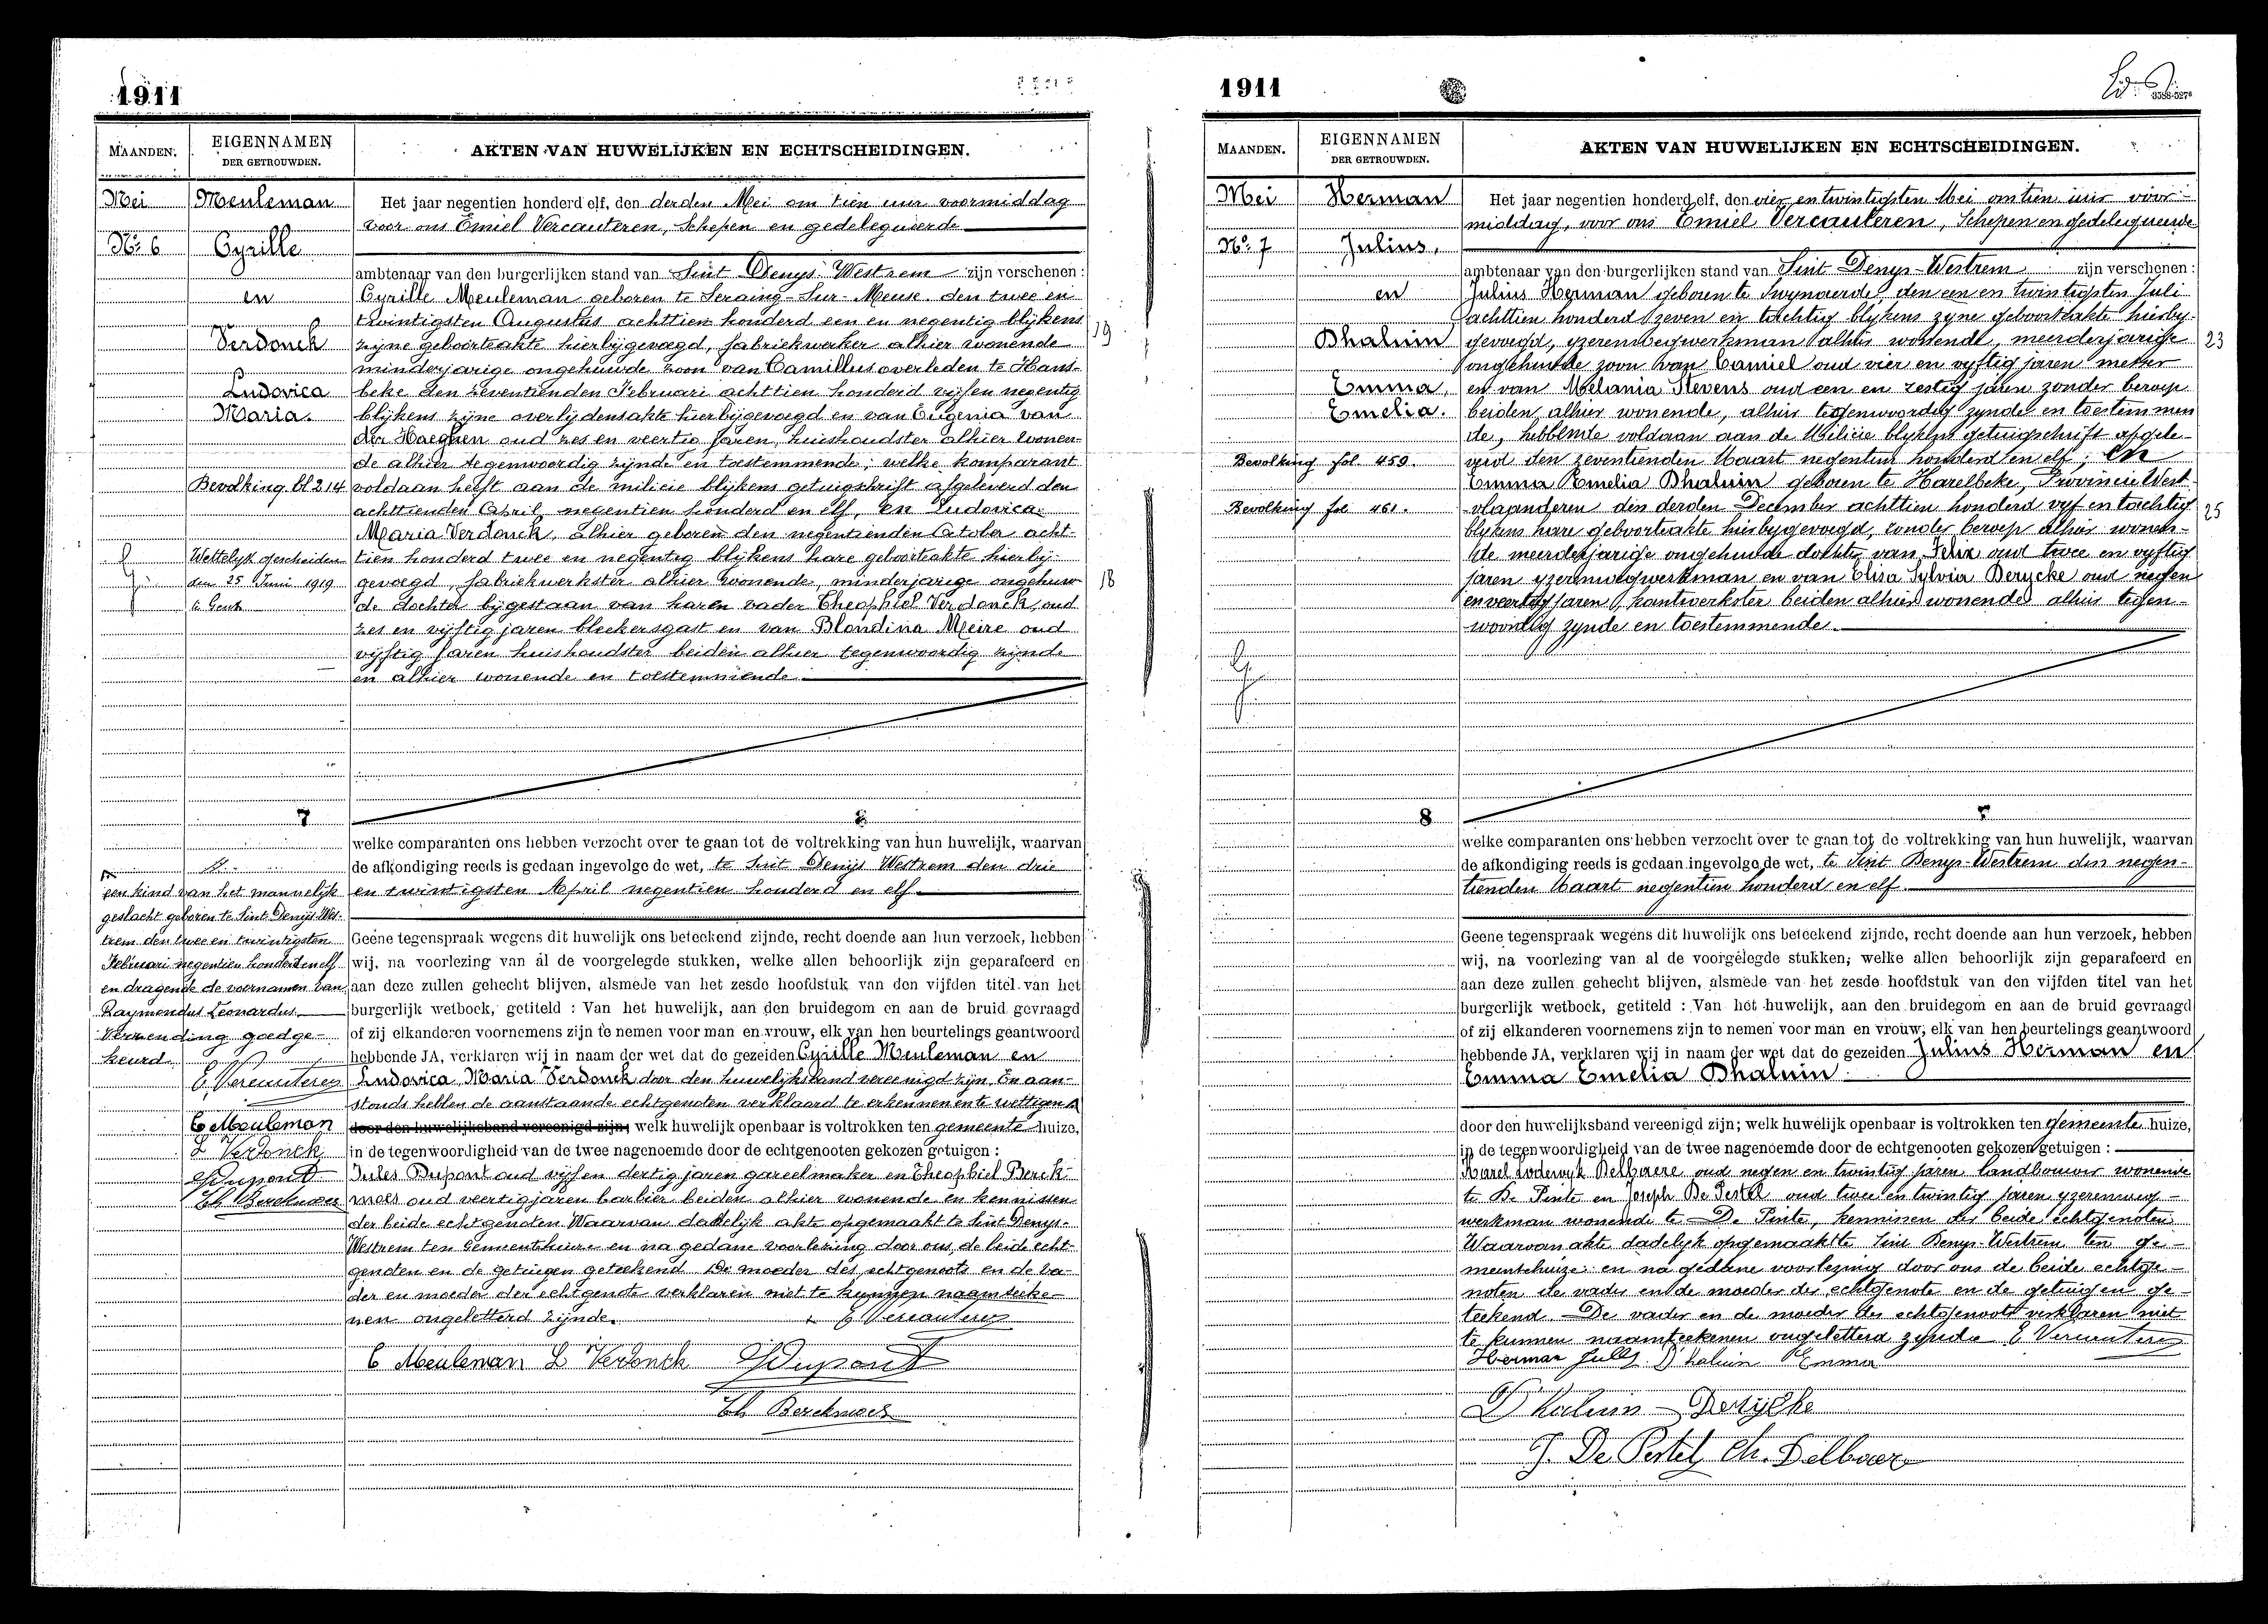 1911
MAANDEN.
EIGENNAMEN
DER GETROUWDEN.
AKTEN VAN HUWELIJKEN EN ECHTSCHEIDINGEN.
Mei
No. 6
Meuleman
Cyrille
en
Verdonck
Ludovica
Maria.
Bevolking bl 214
Wettelijk gescheiden
den 25 Juni 1919
te Gent
Het jaar negentien honderd elf, den derden Mei om tien uur voormiddag
voor ons Emiel Vercauteren, Schepen en gedelegueerde
ambtenaar van den burgerlijken stand van Sint Denys Westrem zijn verschenen :
Cyrille Meuleman geboren te Seraing-Sur-Meuse den twee en
twintigsten Augustus achttien honderd een en negentig blijkens
zijne geboorteakte hierbijgevoegd, fabriekwerker alhier wonende
minderjarige ongehuwde zoon van Camillus overleden te Hans-
beke den zeventienden Februari achttien honderd vijf en negentig
blijkens zijne overlijdensakte hierbijgevoegd en van Eugenia van
der Haeghen oud zes en veertig jaren, huishoudster alhier wonen-
de alhier tegenwoordig zijnde en toestemmende; welke komparant
voldaan heeft aan de milicie blijkens getuigschrift afgeleverd den
achttienden April negentien honderd en elf, en Ludovica
Maria Verdonck, alhier geboren den negentienden October acht-
tien honderd twee en negentig blijkens hare geboorteakte hierbij-
gevoegd, fabriekwerkster alhier wonende, minderjarige ongehuw-
de dochter bijgestaan van haren vader Theophiel Verdonck, oud
zes en vijftig jaren bleekersgast en van Blondina Meire oud
vijftig jaren huishoudster beiden alhier tegenwoordig zijnde
en alhier wonende en toestemmende
19
18
7
welke comparanten ons hebben verzocht over te gaan tot de voltrekking van hun huwelijk, waarvan
de afkondiging reeds is gedaan ingevolge de wet, te Sint Denijs Westrem den drie
en twintigsten April negentien honderd en elf
een kind van het mannelijk
geslacht geboren te Sint Denijs Wes-
trem den twee en twintigsten
Februari negentien honderd en elf
en dragende de voornamen van
Raymondus Leonardus.
Verzending goedge-
keurd.
E. Vercauteren
C Meuleman
L Verdonck
JDupont
Th Berckmoes
Geene tegenspraak wegens dit huwelijk ons beteekend zijnde, recht doende aan hun verzoek, hebben
wij, na voorlezing van al de voorgelegde stukken, welke allen behoorlijk zijn geparafeerd en
aan deze zullen gehecht blijven, alsmede van het zesde hoofdstuk van den vijfden titel van het
burgerlijk wetboek, getiteld : Van het huwelijk, aan den bruidegom en aan de bruid gevraagd
of zij elkanderen voornemens zijn te nemen voor man en vrouw, elk van hen beurtelings geantwoord
hebbende JA, verklaren wij in naam der wet dat de gezeiden Cyrille Meuleman en
Ludovica Maria Verdonck door den huwelijksband vereenigd zijn. En aan-
stonds hebben de aanstaande echtgenoten verklaard te erkennen en te wettigen
door den huwelijksband vereenigd zijn; welk huwelijk openbaar is voltrokken ten gemeente huize,
in de tegenwoordigheid van de twee nagenoemde door de echtgenooten gekozen getuigen :
Jules Dupont oud vijf en dertig jaren gareelmaker en Theophiel Berck-
moes oud veertig jaren barbier beiden alhier wonende en kennissen
der beide echtgenoten. Waarvan dadelijk akte opgemaakt te Sint Denys-
Westrem ten Gemeentehuize en na gedane voorlezing door ons, de beide echt-
genoten en de getuigen geteekend. De moeder des echtgenoots en de va-
der en moeder der echtgenote verklaren niet te kunnen naamteeke-
nen ongeletterd zijnde.
E Vercauteren
C Meuleman L Verdonck JDupont
Th Berckmoes
1911
MAANDEN.
EIGENNAMEN
DER GETROUWDEN.
AKTEN VAN HUWELIJKEN EN ECHTSCHEIDINGEN.
Mei
No. 7
Herman
Julius,
en
Dhaluin
Emma,
Emelia.
Bevolking fol 459.
Bevolking fol 461.
Het jaar negentien honderd elf, den vier en twintigsten Mei om tien uur voor-
middag, voor ons Emiel Vercauteren, Schepen en gedelegueerde
ambtenaar van den burgerlijken stand van Sint Denys-Westrem zijn verschenen :
Julius Herman geboren te Swynaerde, den een en twintigsten Juli
achttien honderd zeven en tachtig blykens zyne geboorteakte hierby-
gevoegd, yzerenwegwerkman alhier wonende, meerderjarige
ongehuwde zoon van Camiel oud vier en vyftig jaren metser
en van Melania Stevens oud een en zestig jaren zonder beroep
beiden alhier wonende, alhier tegenwoordig zynde en toestemmen
de, hebbende voldaan aan de Milicie blykens getuigschrift afgele-
verd den zeventienden Maart negentien honderd en elf; en
Emma Emelia Dhaluin geboren te Harelbeke, Provincie West-
vlaanderen den derden December achttien honderd vyf en tachtig
blykens hare geboorteakte hierbygevoegd, zonder beroep alhier wonen-
de meerderjarige ongehuwde dochter van Felix oud twee en vyftig
jaren yzerenwegwerkman en van Elisa Sylvia Derycke oud negen
en veertig jaren, kantwerkster beiden alhier wonende alhier tegen-
woordig zynde en toestemmende.
23
25
8
welke comparanten ons hebben verzocht over te gaan tot de voltrekking van hun huwelijk, waarvan
de afkondiging reeds is gedaan ingevolge de wet, te Sint Denys-Westrem den negen-
tienden Maart negentien honderd en elf.
Geene tegenspraak wegens dit huwelijk ons beteekend zijnde, recht doende aan hun verzoek, hebben
wij, na voorlezing van al de voorgelegde stukken, welke allen behoorlijk zijn geparafeerd en
aan deze zullen gehecht blijven, alsmede van het zesde hoofdstuk van den vijfden titel van het
burgerlijk wetboek, getiteld : Van het huwelijk, aan den bruidegom en aan de bruid gevraagd
of zij elkanderen voornemens zijn te nemen voor man en vrouw, elk van hen beurtelings geantwoord
hebbende JA, verklaren wij in naam der wet dat de gezeiden Julius Herman en
Emma Emelia Dhaluin
door den huwelijksband vereenigd zijn; welk huwelijk openbaar is voltrokken ten gemeente huize,
in de tegenwoordigheid van de twee nagenoemde door de echtgenooten gekozen getuigen :
Karel Lodewyk Delbaere oud negen en twintig jaren landbouwer wonende
te De Pinte en Joseph De Pestel oud twee en twintig jaren yzerenweg-
werkman wonende te De Pinte, kennissen der beide echtgenoten
Waarvan akte dadelyk opgemaakt te Sint Denys-Westrem ten ge-
meentehuize en na gedane voorlezing door ons de beide echtge-
noten de vader en de moeder der echtgenote en de getuigen ge-
teekend. De vader en de moeder des echtgenoots verklaren niet
te kunnen naamteekenen ongeletterd zynde E Vercauteren
Herman Julls D'haluin Emma
D'haluin Derijcke
J. De Pestel Ch. Delbaere